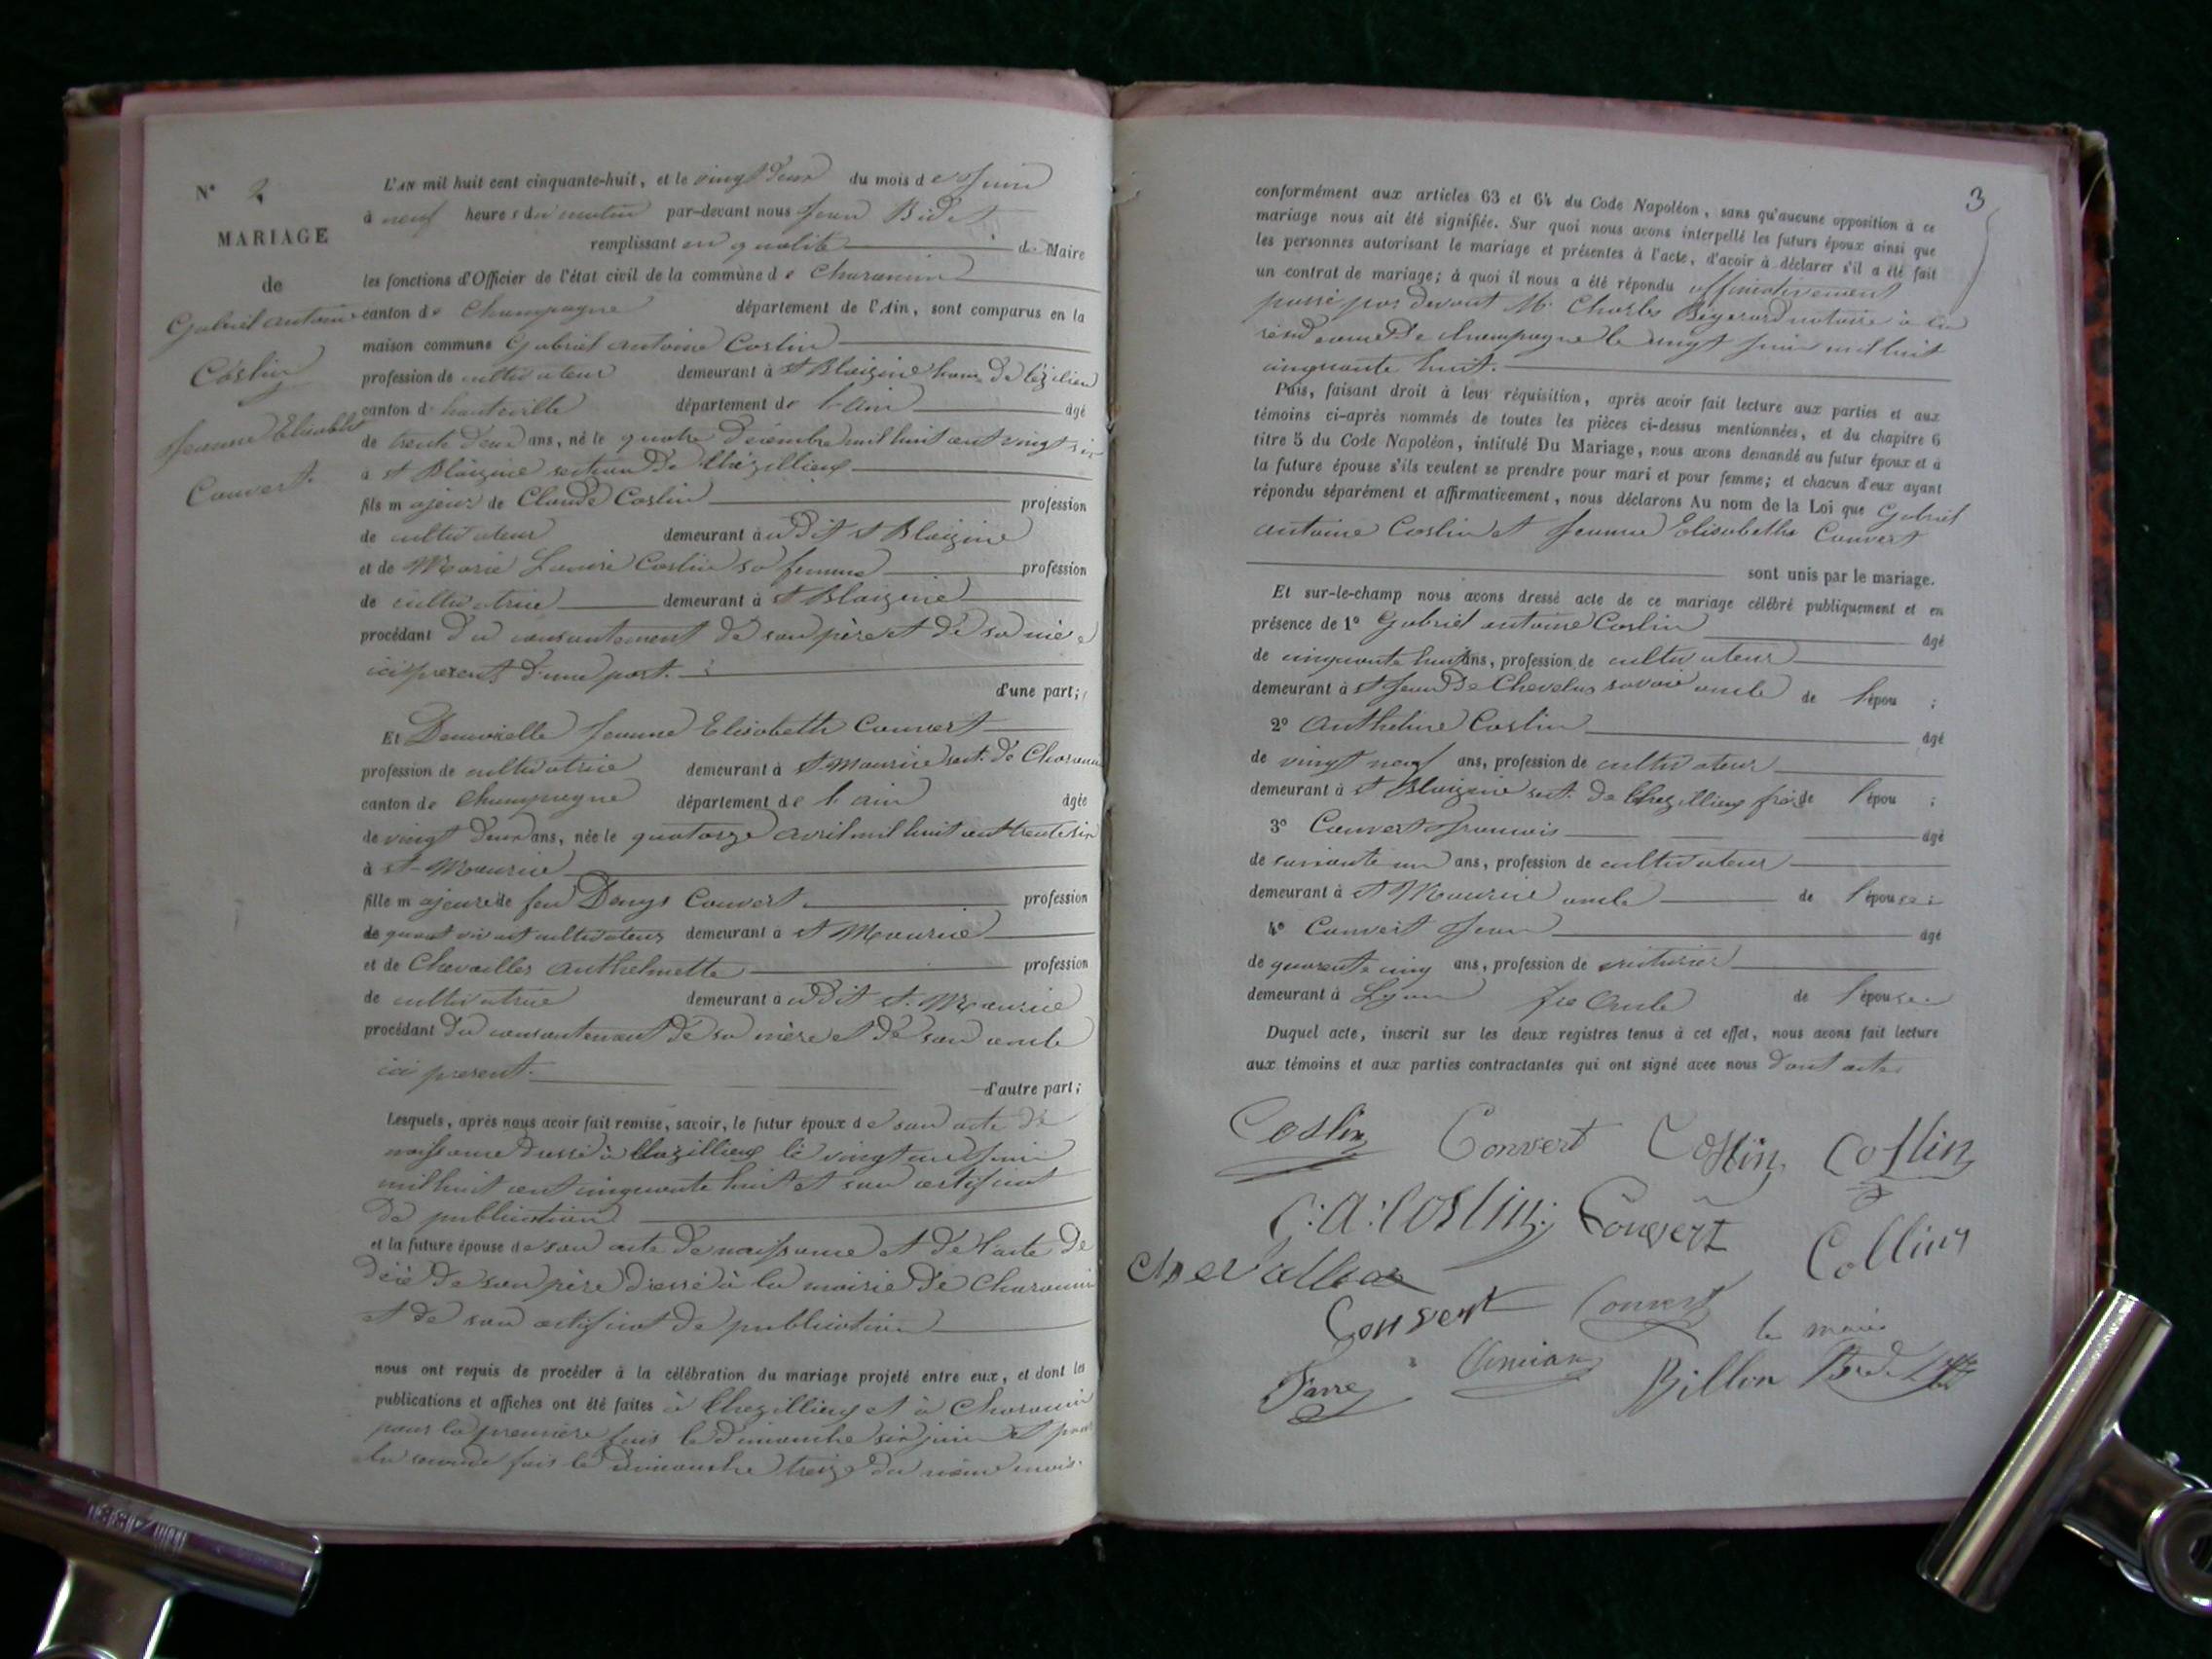 N° 2
MARIAGE
de
Gabriel antoine
Coslin
Jeanne Elisabeth
Convert.
L'AN mil huit cent cinquante-huit, et le vingt deux du mois de Juin
à neuf heures du matin par-devant nous Jean Bidet
remplissant en qualité de Maire
les fonctions d'Officier de l'état civil de la commune de Charancin
canton de Champagne département de l'Ain, sont comparus en la
maison commune Gabriel antoine Coslin
profession de cultivateur demeurant à St Blaizine ham. De
canton de hauteville département de l'ain âgé
de trente deux ans, né le quatre Décembre mil huit cent vingt six
a St Blaizine section De thézillieux
fils majeur de Claude Coslin profession
de cultivateur demeurant au Dit St Blaizine
et de Marie Coslin sa femme profession
de cultivatrice demeurant à St Blaizine
procédant Du consentement De son père et De sa mère
ici presents D'une part.
d'une part;
Et Demoiselle Jeanne Elisabeth Convert
profession de cultivatrice demeurant à St Maurice sect. De Charancin
canton de Champagne département de l'ain âgée
de vingt Deux ans, née le quatorze avril mil huit cent trente six
à St Maurice
fille majeure de feu Denys Convert profession
de quand vivait cultivateur demeurant à St Maurice
et de Chevailler Anthelmette profession
de cultivatrice demeurant au Dit St. Maurice
procédant Du consentement De sa mère et De son oncle
ici present.
d'autre part;
Lesquels, après nous avoir fait remise, savoir, le futur époux de son acte De
naissance Dressé à thézillieux le vingt un Juin
mil huit cent cinquante huit et son certificat
De publication
et la future épouse de son acte De naissance et De l'acte De
Décè De son père Dressé à la mairie De Charancin
et De son certificat De publication
nous ont requis de procéder à la célébration du mariage projeté entre eux, et dont les
publications et affiches ont été faites à thezillieux et à Charancin
pour la première fois le Dimanche six juin et pour
la seconde fois le Dimanche treize du même mois.
3
conformément aux articles 63 et 64 du Code Napoléon, sans qu'aucune opposition à ce
mariage nous ait été signifiée. Sur quoi nous avons interpellé les futurs époux ainsi que
les personnes autorisant le mariage et présentes à l'acte, d'avoir à déclarer s'il a été fait
un contrat de mariage; à quoi il nous a été répondu affirmativement
passé par devant Me Charles notaire à la
résidence De champagne le vingt Juin mil huit
cinquante huit.
Puis, faisant droit à leur réquisition, après avoir fait lecture aux parties et aux
témoins ci-après nommés de toutes les pièces ci-dessus mentionnées, et du chapitre 6
titre 5 du Code Napoléon, intitulé Du Mariage, nous avons demandé au futur époux et à
la future épouse s'ils veulent se prendre pour mari et pour femme; et chacun d'eux ayant
répondu séparément et affirmativement, nous déclarons Au nom de la Loi que Gabriel
antoine Coslin et Jeanne Elisabethe Convert
sont unis par le mariage.
Et sur-le-champ nous avons dressé acte de ce mariage célébré publiquement et en
présence de 1° Gabriel antoine Coslin âgé
de cinquante huit ans, profession de cultivateur
demeurant à St Jean De Chevelus savoie oncle de l'épou ;
2° Anthelme Coslin âgé
de vingt neuf ans, profession de cultivateur
demeurant à St Blaizine sect. De thezillieux frère de l'épou ;
3° Convert francois âgé
de soixante un ans, profession de cultivateur
demeurant à St Maurice oncle de l'épouse;
4° Convert Jean âgé
de quarente cinq ans, profession de voiturier
demeurant à Lyon Oncle de l'épouse
Duquel acte, inscrit sur les deux registres tenus à cet effet, nous avons fait lecture
aux témoins et aux parties contractantes qui ont signé avec nous Dont acte
Coslin Convert Coslin Coslin
C:A:Coslin: Convert Collin
Chevallier
Convert Convert
le maire
Favre Billon Bidet